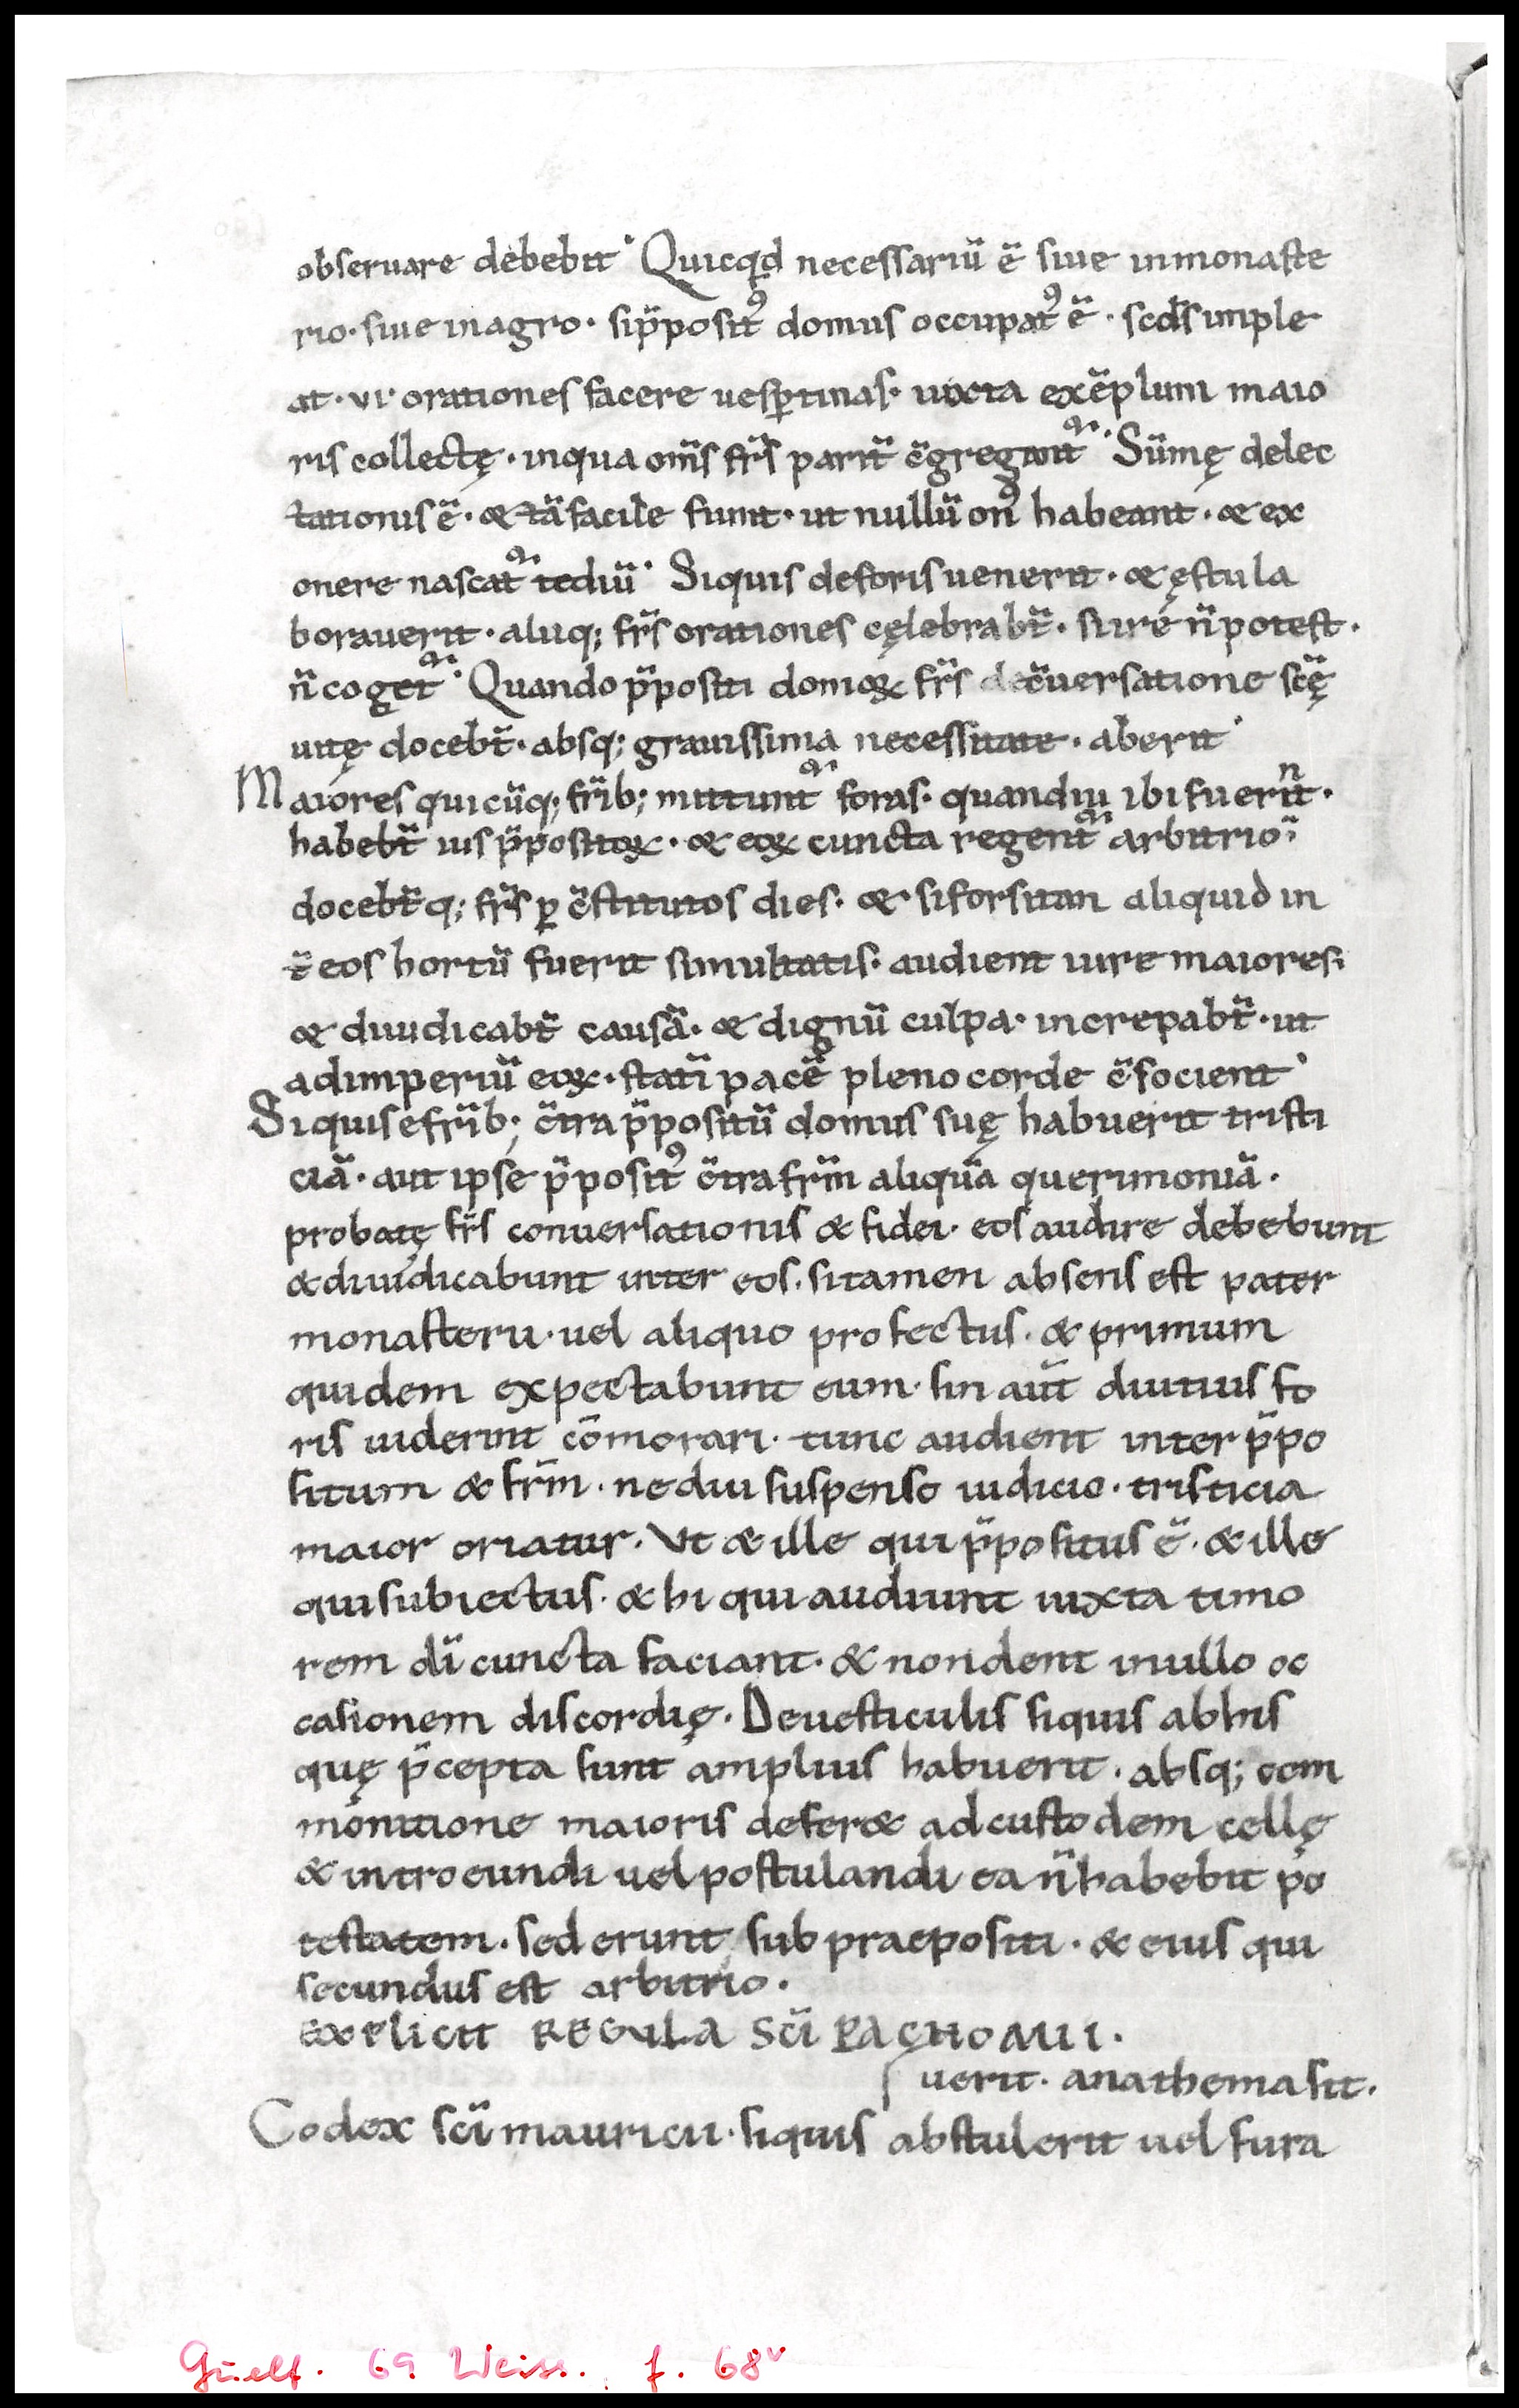 obseruare debebit· Quicqd necessariū ē siue inmonaste
rio· siue inagro· sip̄posit⁹ domus occupat⁹ ē· scd̄s imple
at· vi· orationes facere uesp̱tinas· iuxta exēplum maio
ris collectę· inqua om̄s fr̄s parit̄ c̄gregant᷑· Sūmę delec
tationis ē· & tā facile fiunt· ut nullū on⁹ habeant· & ex
onere nascat᷑ tediū· Siquis deforis uenerit· & ęstu la
borauerit· aliiq; fr̄s orationes cęlebrabt̄· si ire n̄ potest·
n̄ coget᷑· Quando p̄positi domoꝝ fr̄s de c̄uersatione scę̄
uitę docebt̄· absq; grauissima necessitate· aberit·
Maiores quicūq; fr̄ib; mittunt᷑ foras· quandiu ibi fuerint·
habebt̄ ius p̄positoꝝ· & eoꝝ cuncta regent᷑ arbitrio·
docebt̄q; fr̄s ꝑ c̄stitutos dies· & siforsitan aliquid in
t̄ eos hortū fuerit simultatis· audient iure maiores·
& diiudicabt̄ causā· & dignū culpa· increpabt̄· ut
adimperiū eoꝝ· stati̅ pacē pleno corde c̄socient·
Siquis e fr̄ib; c̄tra p̄positū domus suę habuerit tristi
ciā· aut ipse p̄posit⁹ c̄tra fr̄m aliquā querimoniā·
probatę fr̄s conuersationis & fidei· eos audire debebunt
& diiudicabunt inter eos· sitamen absens est pater
monasterii· uel aliquo profectus· & primum
quidem expectabunt eum· sin aūt diutius fo
ris uiderint cōmorari· tunc audient inter p̄po
situm & fr̄m· ne diu suspenso iudicio· tristicia
maior oriatur· Vt & ille qui p̄positus ē· & ille
qui subiectus· & hi qui audiunt iuxta timo
rem dī cuncta faciant· & non dent in ullo oc
casionem discordię· De uesticulis siquis ab his
quę p̄cepta sunt amplius habuerit· absq; com
monitione maioris defer& ad custodem cellę
& introeundi uel postulandi ea n̄ habebit po
testatem· sed erunt sub praepositi· & eius qui
secundus est arbitrio·
EXPLICIT REGULA SCI PACHOMII·
uerit· anathema sit·
Codex sc̄i mauricii· siquis abstulerit uel fura
Guelf. 69 Weiss., f. 68v